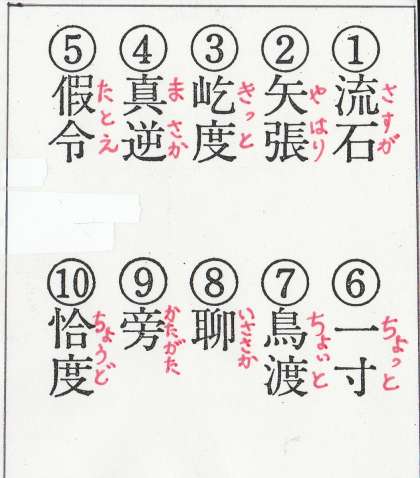 ① 流石 さすが
② 矢張 やはり
③ 屹度 きっと
④ 真逆 まさか
⑤ 假令 たとえ
⑥ 一寸 ちょっと
⑦ 鳥渡 ちょいと
⑧ 聊 いささか
⑨ 旁 かたがた
⑩ 恰度 ちょうど